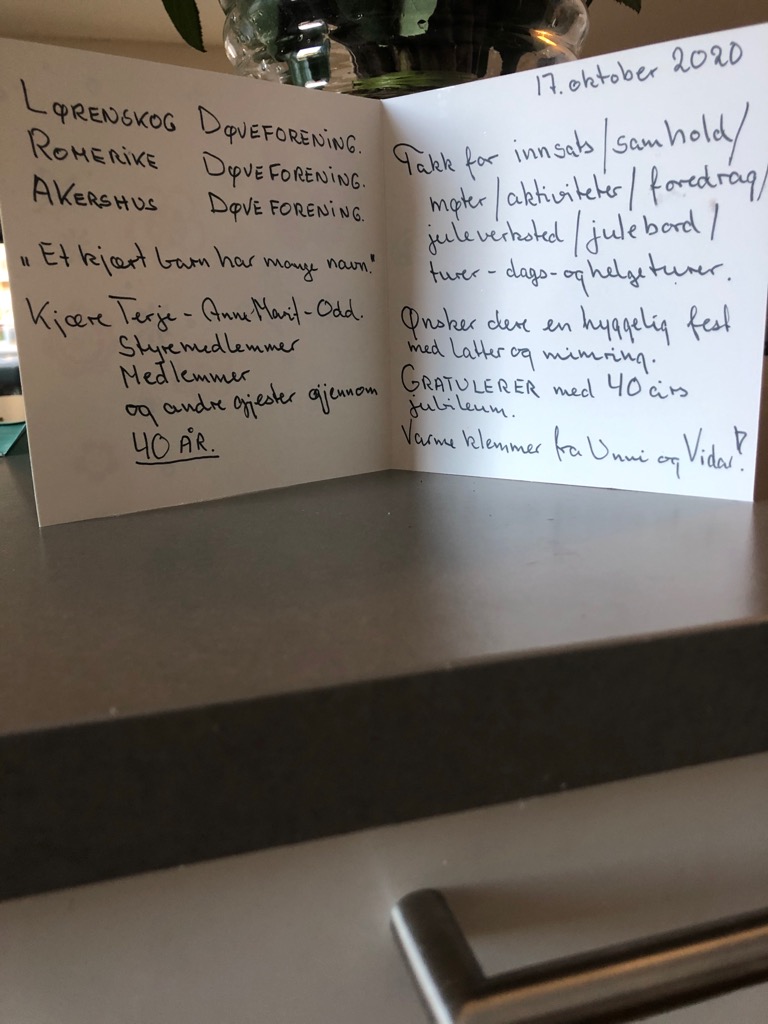 LØRENSKOG DØVEFORENING.
ROMERIKE DØVEFORENING.
AKERSHUS DØVEFORENING.
„Et kjært barn har mange navn."
Kjære Terje - Anne Marit - Odd.
Styremedlemmer
Medlemmer
og andre gjester gjennom
40 ÅR.
17. oktober 2020
Takk for innsats / samhold /
møter / aktiviteter / foredrag /
juleverksted / julebord /
turer - dags- og helgeturer.
Ønsker dere en hyggelig fest
med latter og mimring.
GRATULERER med 40 års
jubileum.
Varme klemmer fra Unni og Vidar!